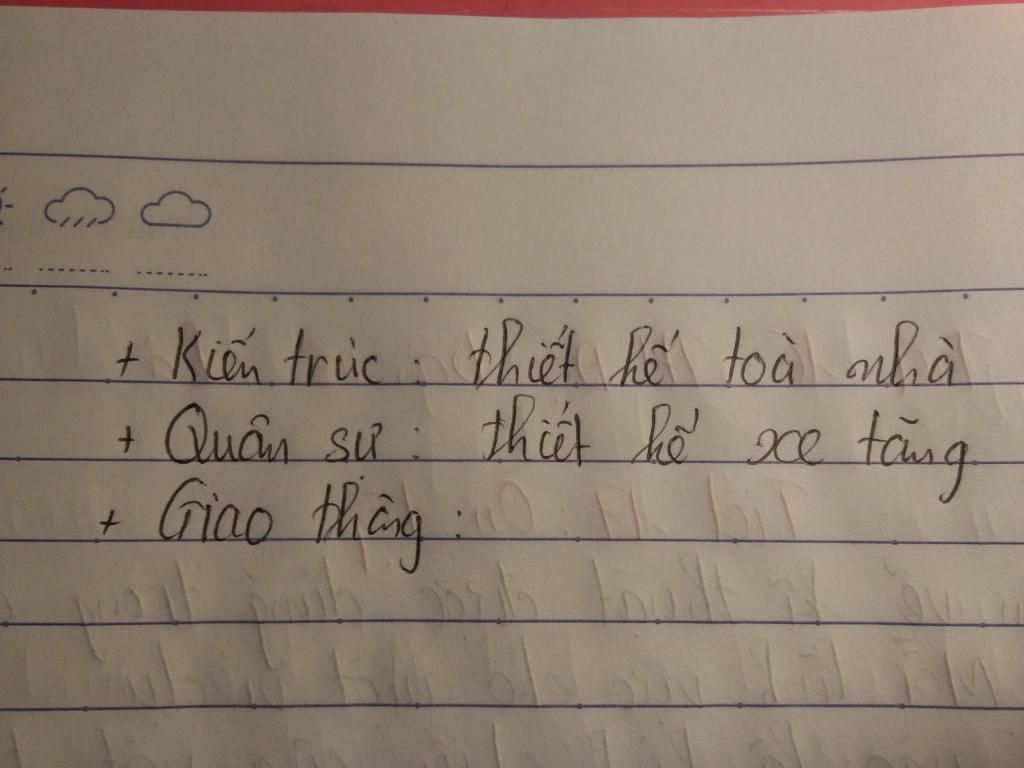 + Kiến trúc : thiết kế toà nhà
+ Quân sự : thiết kế xe tăng
+ Giao thông :